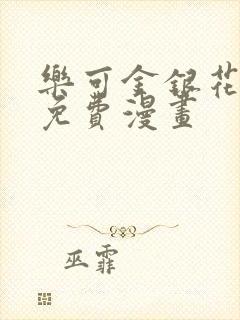 樂可金銀花
免費漫畫
巫霏